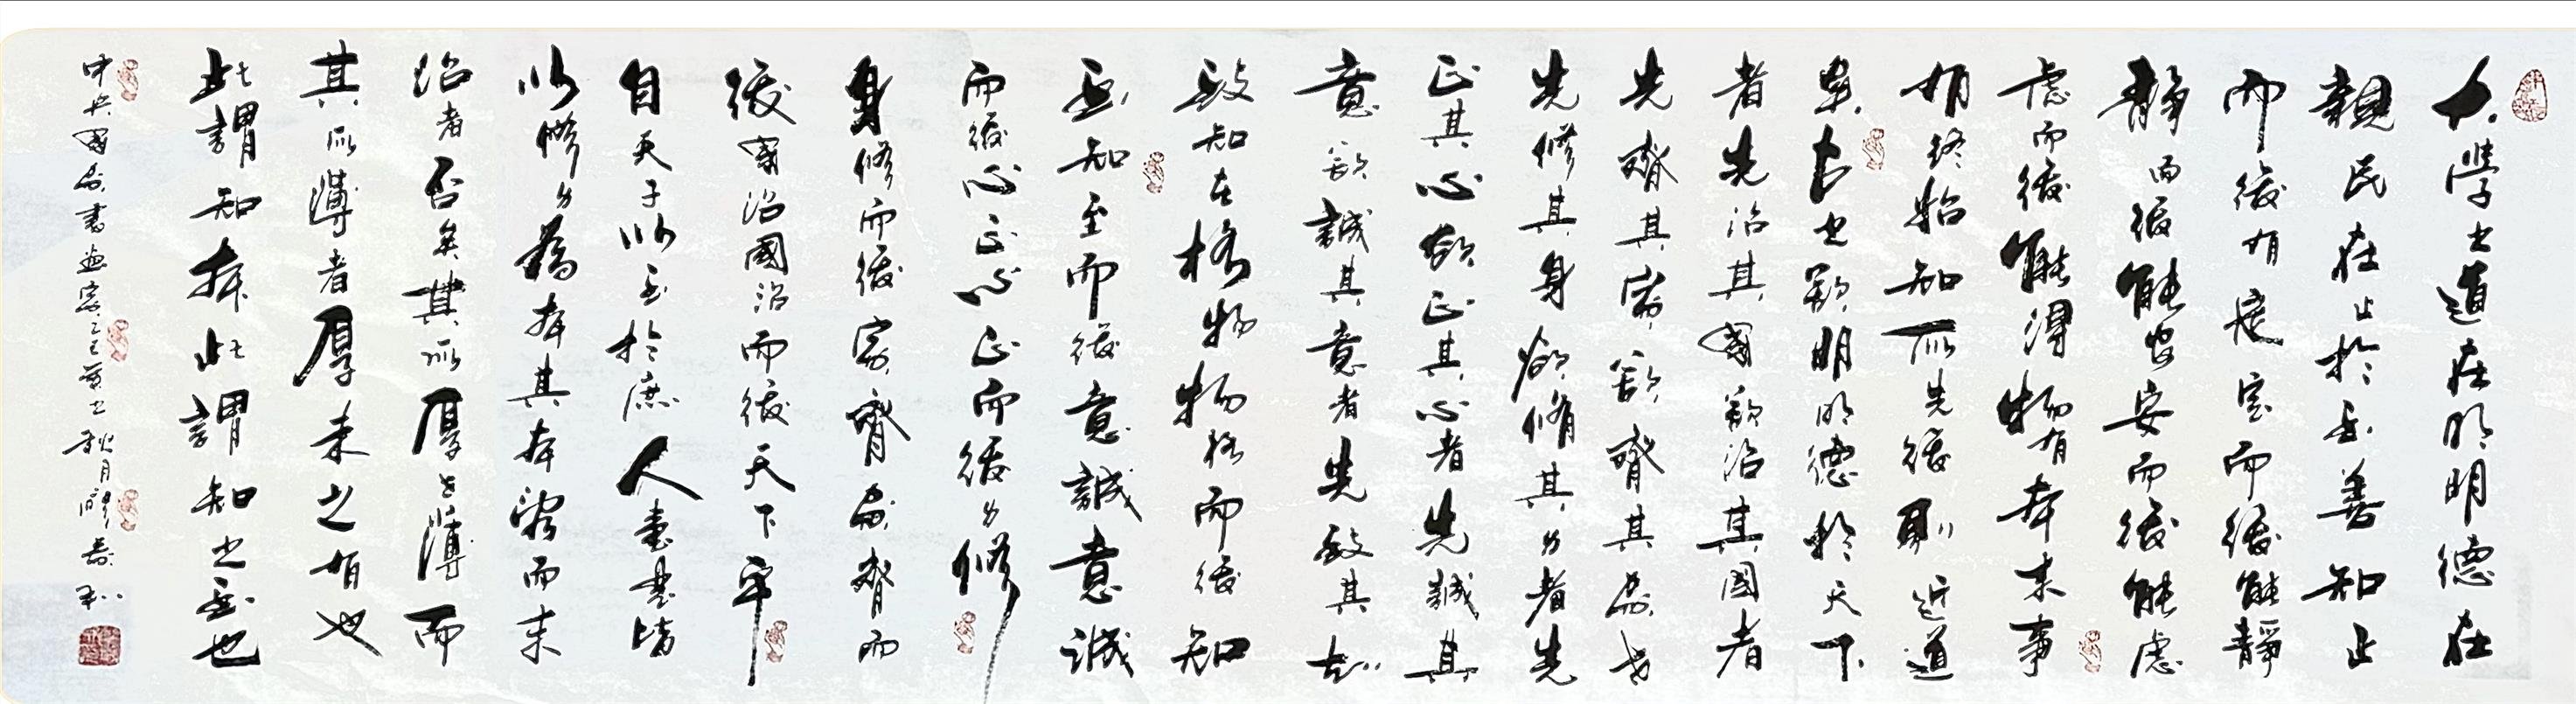 大學之道在明明德在
親民在止於至善知止
而後有定定而後能靜
靜而後能安安而後能慮
慮而後能得物有本末事
有終始知所先後則近道
矣古之欲明明德於天下
者先治其國欲治其國者
先齊其家欲齊其家者
先修其身欲修其身者先
正其心欲正其心者先誠其
意欲誠其意者先致其知
致知在格物物格而後知
至知至而後意誠意誠
而後心正心正而後身修
身修而後家齊家齊而
後國治國治而後天下平
自天子以至於庶人壹是皆
以修身為本其本亂而末
治者否矣其所厚者薄而
其所薄者厚未之有也
此謂知本此謂知之至也
中央國家書畫院乙巳年之秋月